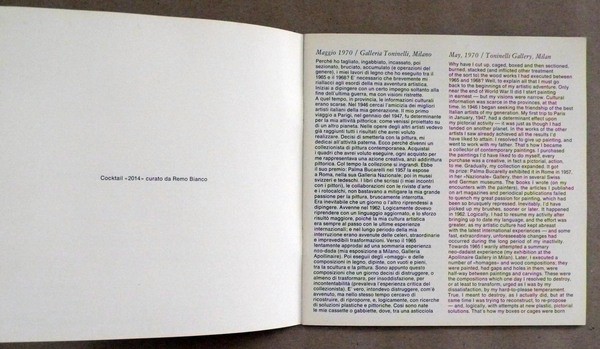 Cocktail «2014» curato da Remo Bianco
Maggio 1970 / Galleria Toninelli, Milano
Perché ho tagliato, ingabbiato, incassato, poi
sezionato, bruciato, accumulato (e operazioni del
genere), i miei lavori di legno che ho eseguito tra il
1965 e il 1968? E' necessario che brevemente mi
riallacci agli esordi della mia avventura artistica.
Iniziai a dipingere con un certo impegno soltanto alla
fine dell'ultima guerra, ma con visioni ristrette.
A quel tempo, in provincia, le informazioni culturali
erano scarse. Nel 1946 cercai l'amicizia dei migliori
artisti italiani della mia generazione. Il mio primo
viaggio a Parigi, nel gennaio del 1947, fu determinante
per la mia attività pittorica: come venissi proiettato su
di un altro pianeta. Nelle opere degli altri artisti vedevo
già raggiunti tutti i risultati che avrei voluto
realizzare. Decisi di smetterla con la pittura, mi
dedicai all'attività paterna. Ecco perché divenni un
collezionista di pittura contemporanea. Acquistai
i quadri che avrei voluto eseguire, ogni acquisto per
me rappresentava una azione creativa, anzi addirittura
pittorica. Col tempo la collezione si ingrandì. Ebbe
il suo premio: Palma Bucarelli nel 1957 la espose
a Roma, nella sua Galleria Nazionale; poi in musei
svizzeri e tedeschi. I libri che scrissi (i miei incontri
con i pittori), le collaborazioni con le riviste d'arte
e i rotocalchi, non bastavano a mitigare la mia grande
passione per la pittura, bruscamente interrotta.
Era inevitabile che un giorno o l'altro riprendessi a
dipingere. Avvenne nel 1962. Logicamente dovevo
riprendere con un linguaggio aggiornato, e lo sforzo
riuscito maggiore, poiché la mia cultura artistica
era sempre al passo con le ultime esperienze
internazionali; e nel lungo periodo della mia
interruzione erano avvenute delle celeri, straordinarie
e imprevedibili trasformazioni. Verso il 1965
lentamente approdai ad una sommaria esperienza
neo-dada (mia esposizione a Milano, Galleria
Apollinaire). Poi eseguii degli «omaggi» e delle
composizioni in legno, dipinte, con vuoti e pieni,
tra la scultura e la pittura. Sono appunto queste
composizioni che un giorno decisi di distruggere, o
almeno di trasformare, per insoddisfazione, per
incontentabilità (prevaleva l'esperienza critica del
collezionista). E' vero, intendevo distruggere, com'è
avvenuto, ma nello stesso tempo cercavo di
ricostruire, di riproporre, e, logicamente, con ricerche
di soluzioni plastiche e pittoriche. Così sono nate
le mia cassette o gabbiette, dove, tra una asticciola
May, 1970 / Toninelli Gallery, Milan
Why have I cut up, caged, boxed and then sectioned,
burned, stacked (and inflicted other treatment
of the sort to) the wood works I had executed between
1965 and 1968? Well, to explain all that I must go
back to the beginnings of my artistic adventure. Only
near the end of World War II did I start painting
in earnest — but my visions were narrow. Cultural
information was scarce in the provinces, at that
time. In 1946 I began seeking the friendship of the best
Italian artists of my generation. My first trip to Paris
in January, 1947, had a determinant effect upon
my pictorial activity — it was just as though I had
landed on another planet. In the works of the other
artists I saw already achieved all the results I'd
have liked to attain. I resolved to give up painting, and
went to work with my father. That's how I became
a collector of contemporary paintings. I purchased
the paintings I'd have liked to do myself; every
purchase was a creative, in fact a pictorial, action,
to me. Gradually, my collection expanded. It got
its prize: Palma Bucarelli exhibited it in Rome in 1957,
in her «Nazionale» Gallery, then in several Swiss
and German museums. The books I wrote (on my
encounters with the painters), the articles I published
on art magazines and periodicals failed
to quench my great passion for painting, which had
been so brusquely repressed. Inevitably, I'd have
picked up my brushes, sooner or later. It happened
in 1962. Logically, I had to resume my activity after
bringing up to date my language, and the effort was
greater, as my artistic culture had kept abreast
with the latest international experiences — and some
fast, extraordinary, unforeseeable changes had
occurred during the long period of my inactivity.
Towards 1965 I wearily attempted a summary
neo-dadaist experience (my exhibition at the
Apollinaire Gallery in Milan). Later, I executed a
number of «homages» and wood compositions; they
were painted, had gaps and holes in them, were
half-way between paintings and carvings. These were
the compositions which one day I resolved to destroy,
or at least to transform, urged as I was by my
dissatisfaction, by my hard-to-please temperament.
True, I meant to destroy, as I actually did, but at the
same time I was trying to reconstruct, to re-propose
— and, logically, with attempts at new plastic, pictorial
solutions. That's how my boxes or cages were born